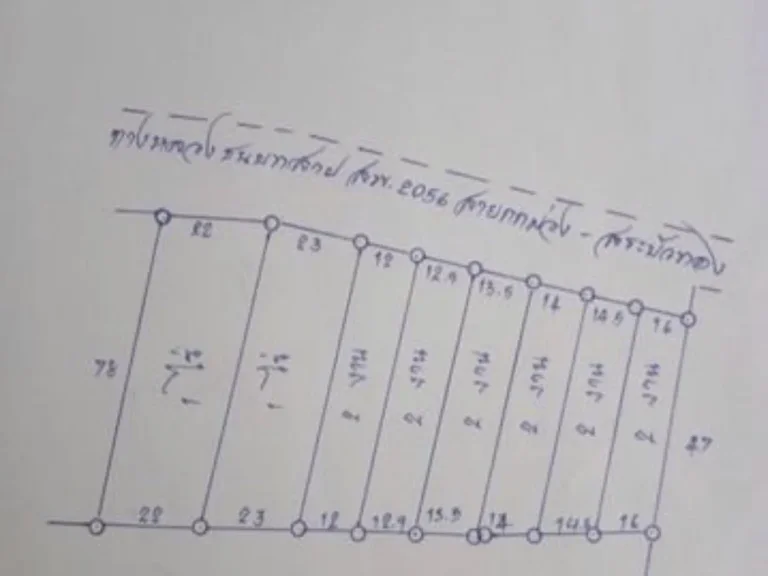 ทางหลวงชนบทสาย สพ.2056 สายกกม่วง - สระบัวทอง
22 23 12 12.9 13.5 14 14.5 16
78 1 ไร่ 1 ไร่ 2 งาน 2 งาน 2 งาน 2 งาน 2 งาน 2 งาน 47
22 23 12 12.9 13.5 14 14.5 16